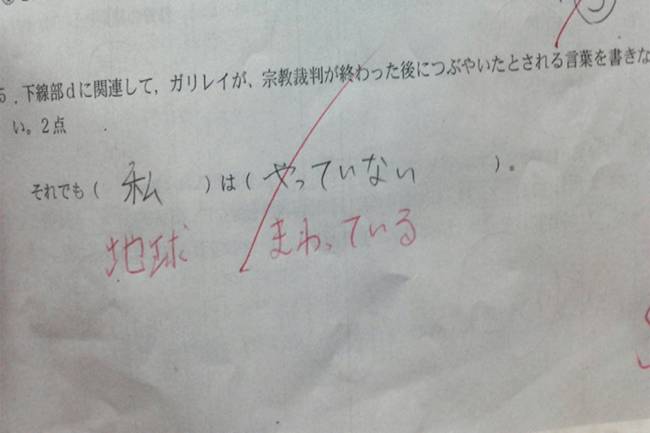 5.下線部dに関連して，ガリレイが、宗教裁判が終わった後につぶやいたとされる言葉を書きな
い。2点
それでも( 私 )は( やっていない )。
地球 まわっている